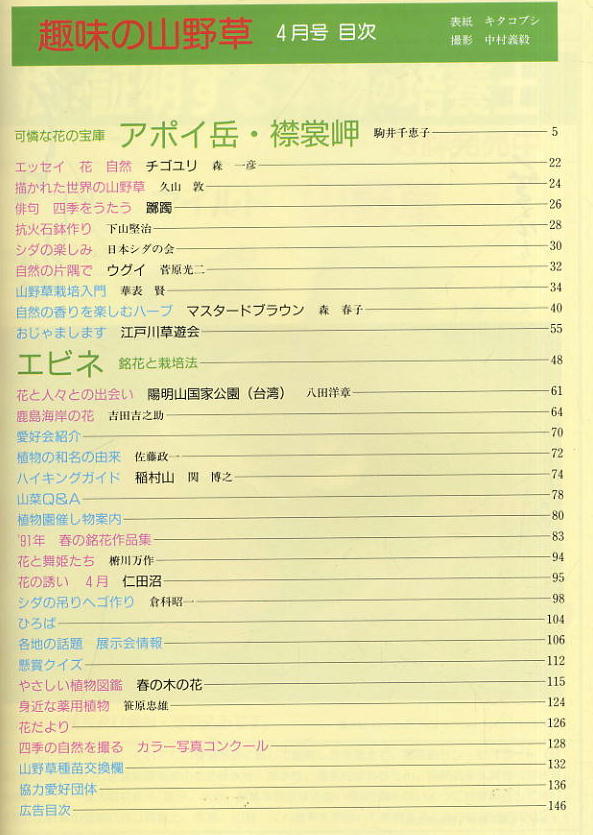 趣味の山野草 4月号 目次
表紙 キタコブシ
撮影 中村義毅
可憐な花の宝庫 アポイ岳・襟裳岬 駒井千恵子 5
エッセイ 花 自然 チゴユリ 森 一彦 22
描かれた世界の山野草 久山 敦 24
俳句 四季をうたう 躑躅 26
抗火石鉢作り 下山堅治 28
シダの楽しみ 日本シダの会 30
自然の片隅で ウグイ 菅原光二 32
山野草栽培入門 華表 賢 34
自然の香りを楽しむハーブ マスタードブラウン 森 春子 40
おじゃまします 江戸川草遊会 55
エビネ 銘花と栽培法 48
花と人々との出会い 陽明山国家公園（台湾） 八田洋章 61
鹿島海岸の花 吉田吉之助 64
愛好会紹介 70
植物の和名の由来 佐藤政一 72
ハイキングガイド 稲村山 関 博之 74
山菜Q&A 78
植物園催し物案内 80
'91年 春の銘花作品集 83
花と舞姫たち 椨川万作 94
花の誘い 4月 仁田沼 95
シダの吊りヘゴ作り 倉科昭一 98
ひろば 104
各地の話題 展示会情報 106
懸賞クイズ 112
やさしい植物図鑑 春の木の花 115
身近な薬用植物 笹原忠雄 124
花だより 126
四季の自然を撮る カラー写真コンクール 128
山野草種苗交換欄 132
協力愛好団体 136
広告目次 146